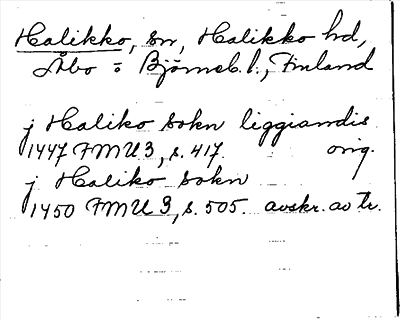 Halikko, sn, Halikko hd,
Åbo o Björneb. l., Finland
j Haliko sokn liggiandis
1447 FMU 3, s. 417. orig.
j Haliko sokn
1450 FMU 3, s. 505. avskr. av tr.